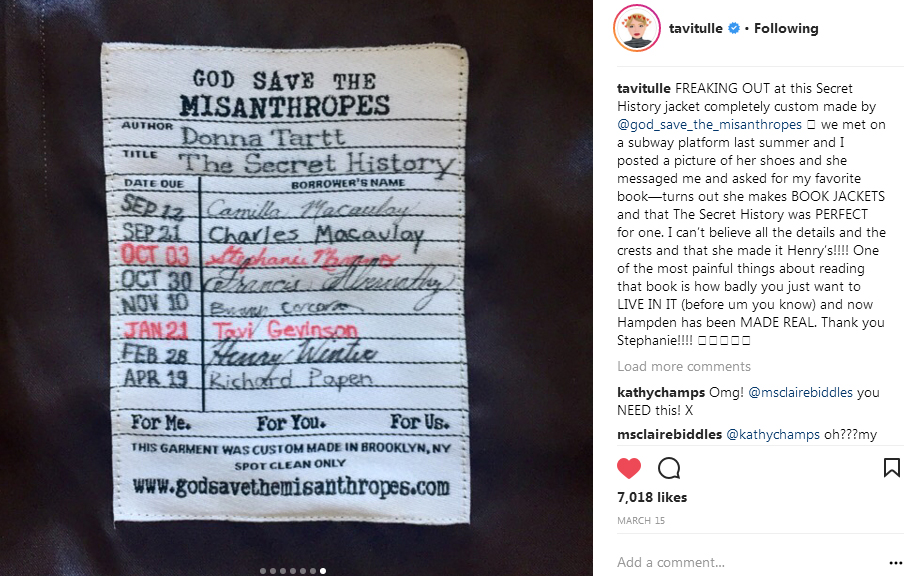 GOD SAVE THE
MISANTHROPES
AUTHOR Donna Tartt
TITLE The Secret History
DATE DUE BORROWER'S NAME
SEP 12 Camilla Macaulay
SEP 21 Charles Macaulay
OCT 03 Stephanie
OCT 30 Francis Abernathy
NOV 10 Bunny Corcoran
JAN 21 Tavi Gevinson
FEB 28 Henry Winter
APR 19 Richard Papen
For Me. For You. For Us.
THIS GARMENT WAS CUSTOM MADE IN BROOKLYN, NY
SPOT CLEAN ONLY
www.godsavethemisanthropes.com
tavitulle • Following
tavitulle FREAKING OUT at this Secret
History jacket completely custom made by
@god_save_the_misanthropes we met on
a subway platform last summer and I
posted a picture of her shoes and she
messaged me and asked for my favorite
book—turns out she makes BOOK JACKETS
and that The Secret History was PERFECT
for one. I can't believe all the details and the
crests and that she made it Henry's!!!! One
of the most painful things about reading
that book is how badly you just want to
LIVE IN IT (before um you know) and now
Hampden has been MADE REAL. Thank you
Stephanie!!!!
Load more comments
kathychamps Omg! @msclairebiddles you
NEED this! X
msclairebiddles @kathychamps oh???my
7,018 likes
MARCH 15
Add a comment...